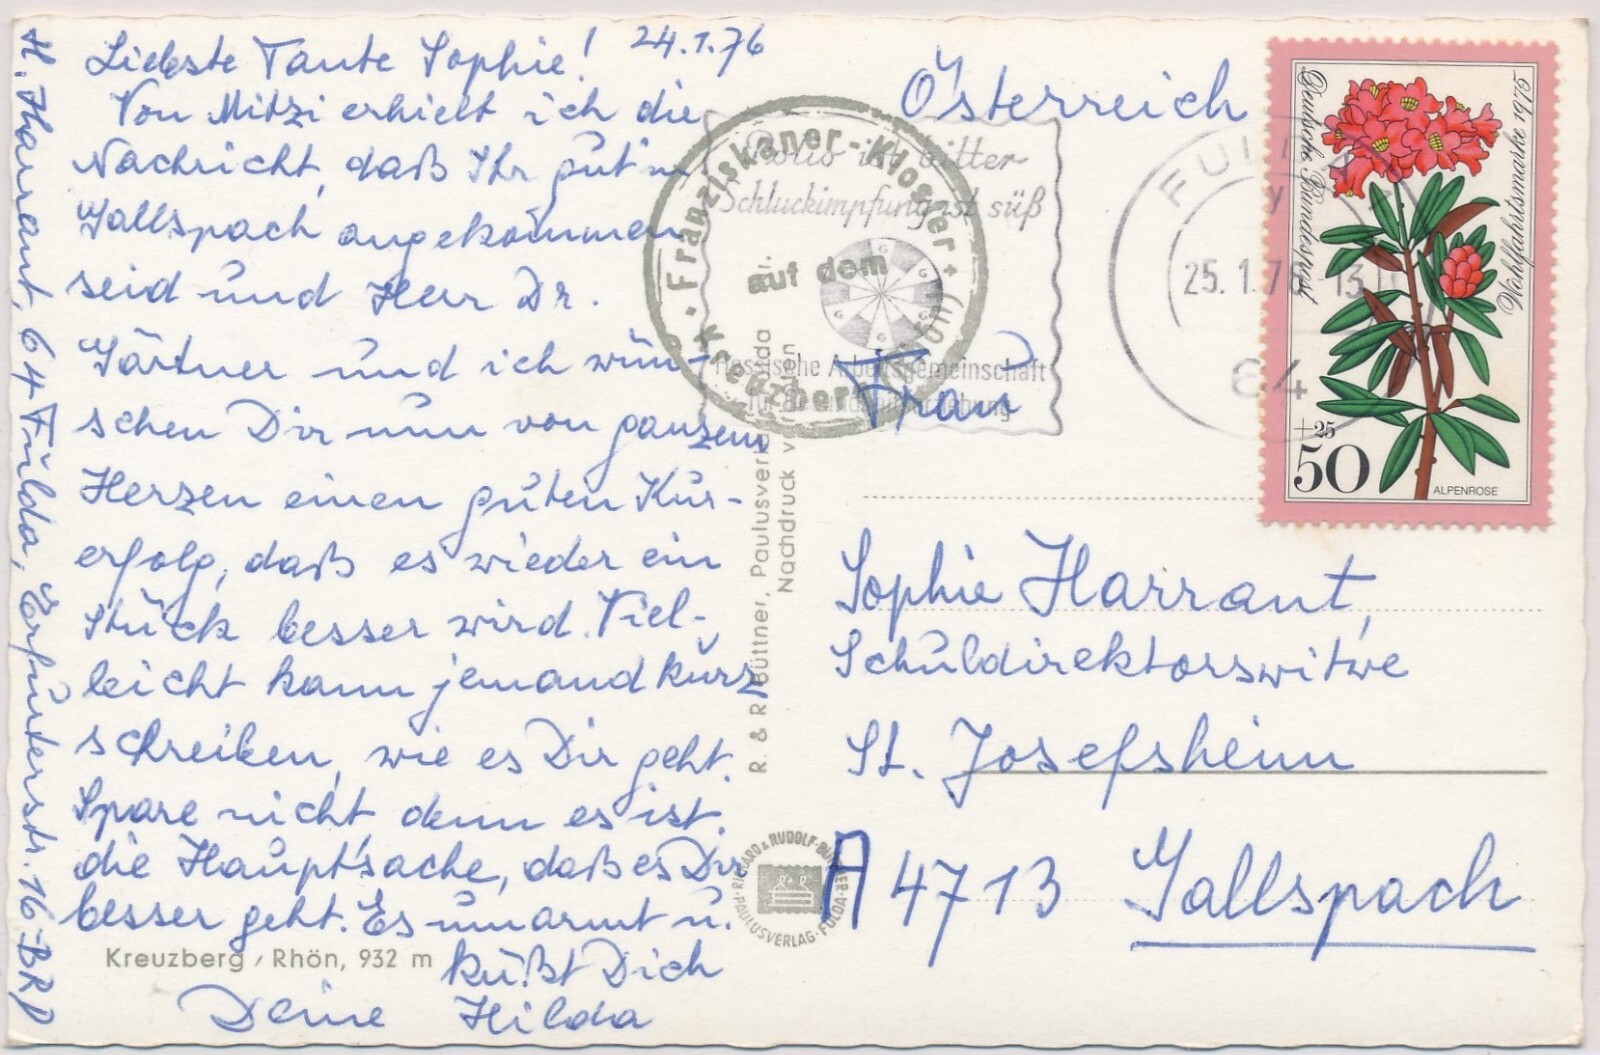 Liebste Tante Sophie! 24.1.76
Von Mitzi erhielt ich die
Nachricht, daß Ihr gut in
Gallspach angekommen
seid und Herr Dr.
Gärtner und ich wün-
schen Dir nun von ganzem
Herzen einen guten Kur-
erfolg, daß es wieder ein
Stück besser wird. Viel-
leicht kann jemand kurz
schreiben, wie es Dir geht.
Spare nicht, denn es ist
die Hauptsache, daß es Dir
besser geht. Es umarmt u.
küßt Dich
Deine Hilda
H. Harrant, 64 Fulda, Erfurterstr. 16-BRD
Kreuzberg / Rhön, 932 m
R. & R. Büttner, Paulusverlag, Fulda
Nachdruck verboten
RICHARD & RUDOLF BÜTTNER
PAULUSVERLAG · FULDA
Franziskaner-Kloster
auf dem
Kreuzberg (Rhön)
Polio ist bitter
Schluckimpfung ist süß
Hessische Arbeitsgemeinschaft
FULDA
y
25.1.76-13
64
Deutsche Bundespost
Wohlfahrtsmarke 1975
+25
50
ALPENROSE
Österreich
Frau
Sophie Harrant,
Schuldirektorswitwe
St. Josefsheim
A 4713 Gallspach